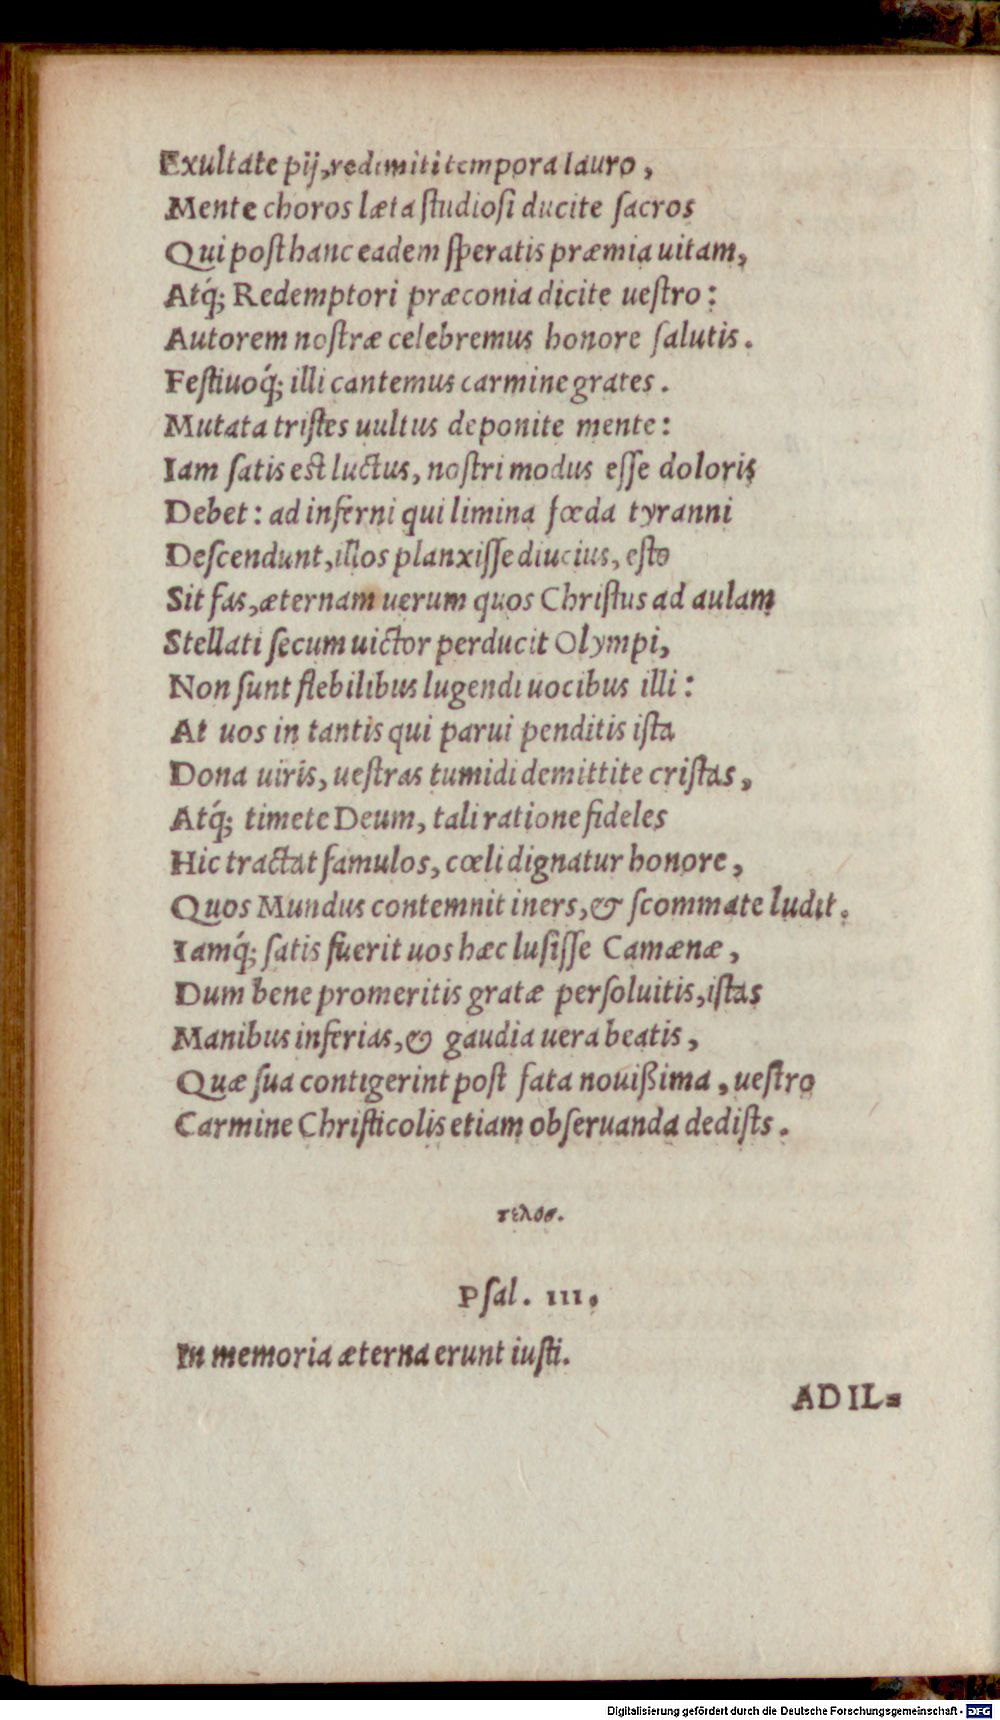 Exultate pij, redimiti tempora lauro,
Mente choros læta ſtudioſi ducite ſacros
Qui poſt hanc eadem ſperatis præmia uitam,
Atq́; Redemptori præconia dicite ueſtro:
Autorem noſtræ celebremus honore ſalutis.
Feſtiuoq́; illi cantemus carmine grates.
Mutata triſtes uultus deponite mente:
Iam ſatis eſt luctus, noſtri modus eſſe doloris
Debet: ad inferni qui limina fœda tyranni
Deſcendunt, illos planxiſſe diucius, eſto
Sit fas, æternam uerum quos Chriſtus ad aulam
Stellati ſecum uictor perducit Olympi,
Non ſunt flebilibus lugendi uocibus illi:
At uos in tantis qui parui penditis iſta
Dona uiris, ueſtras tumidi demittite criſtas,
Atq́; timete Deum, tali ratione fideles
Hic tractat famulos, cœli dignatur honore,
Quos Mundus contemnit iners, & ſcommate ludit.
Iamq́; ſatis fuerit uos hæc luſiſſe Camænæ,
Dum bene promeritis gratæ perſoluitis, iſtas
Manibus inferias, & gaudia uera beatis,
Quæ ſua contigerint poſt fata nouißima, ueſtro
Carmine Chriſticolis etiam obſeruanda dediſts.
τελοσ.
Pſal. III.
In memoria æterna erunt iuſti.
AD IL=
Digitalisierung gefördert durch die Deutsche Forschungsgemeinschaft - DFG